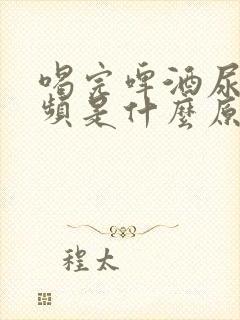 喝完啤酒尿
頻是什麼原
程太